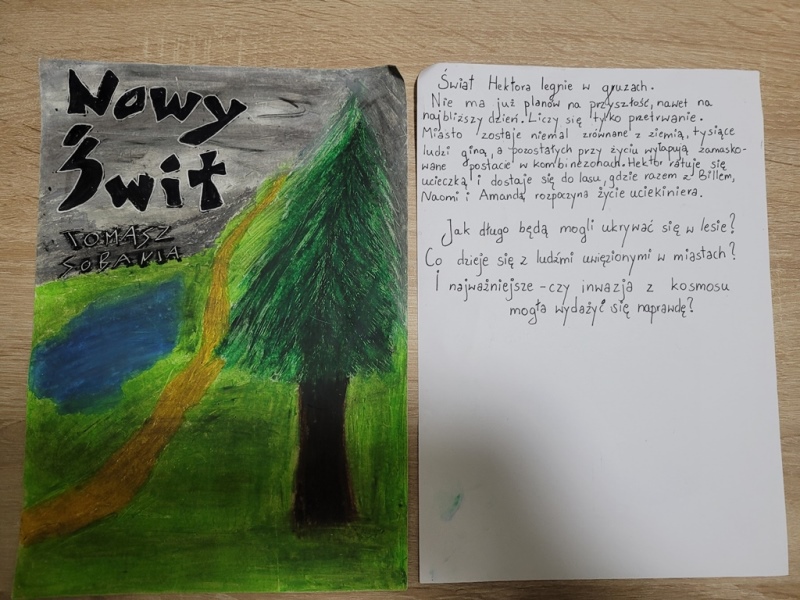 Nowy
Świt
TOMASZ
SOBANIA
Świat Hektora legnie w gruzach.
Nie ma już planów na przyszłość, nawet na
najbliższy dzień. Liczy się tylko przetrwanie.
Miasto zostaje niemal zrównane z ziemią, tysiące
ludzi giną, a pozostałych przy życiu wyłapują zamasko-
wane postacie w kombinezonach. Hektor ratuje się
ucieczką i dostaje się do lasu, gdzie razem z Billem,
Naomi i Amandą rozpoczyna życie uciekiniera.
Jak długo będą mogli ukrywać się w lesie?
Co dzieje się z ludźmi uwięzionymi w miastach?
I najważniejsze - czy inwazja z kosmosu
mogła wydażyć się naprawdę?